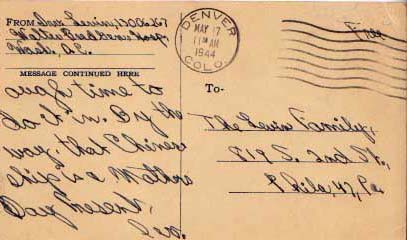 FROM
Walter Reed Hosp,
Wash, D.C.
MESSAGE CONTINUED HERE
ough time to
do it in. By the
way, that Chinese
ship is a Mothers
Day Present.
DENVER
MAY 17
11 AM
1944
COLO.
Free
To-
The Levin Family,
819 S. 2nd St.,
Phila, 47, Pa